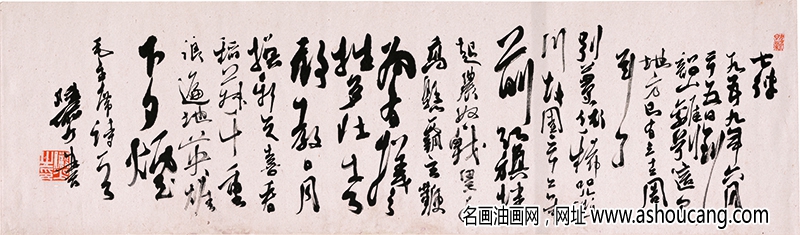 七律
一九五九年六月
二十五日到
韶山離別這個
地方已有三十二周
年了
別夢依稀咒逝
川故園三十二年
前紅旗卷
起農奴戟黑手
高懸霸主鞭
為有犧
牲多壯志
敢教日月
換新天喜看
稻菽千重
浪遍地英雄
下夕煙
毛主席詩一首
書
名画油画网，网址 www.ashoucang.com